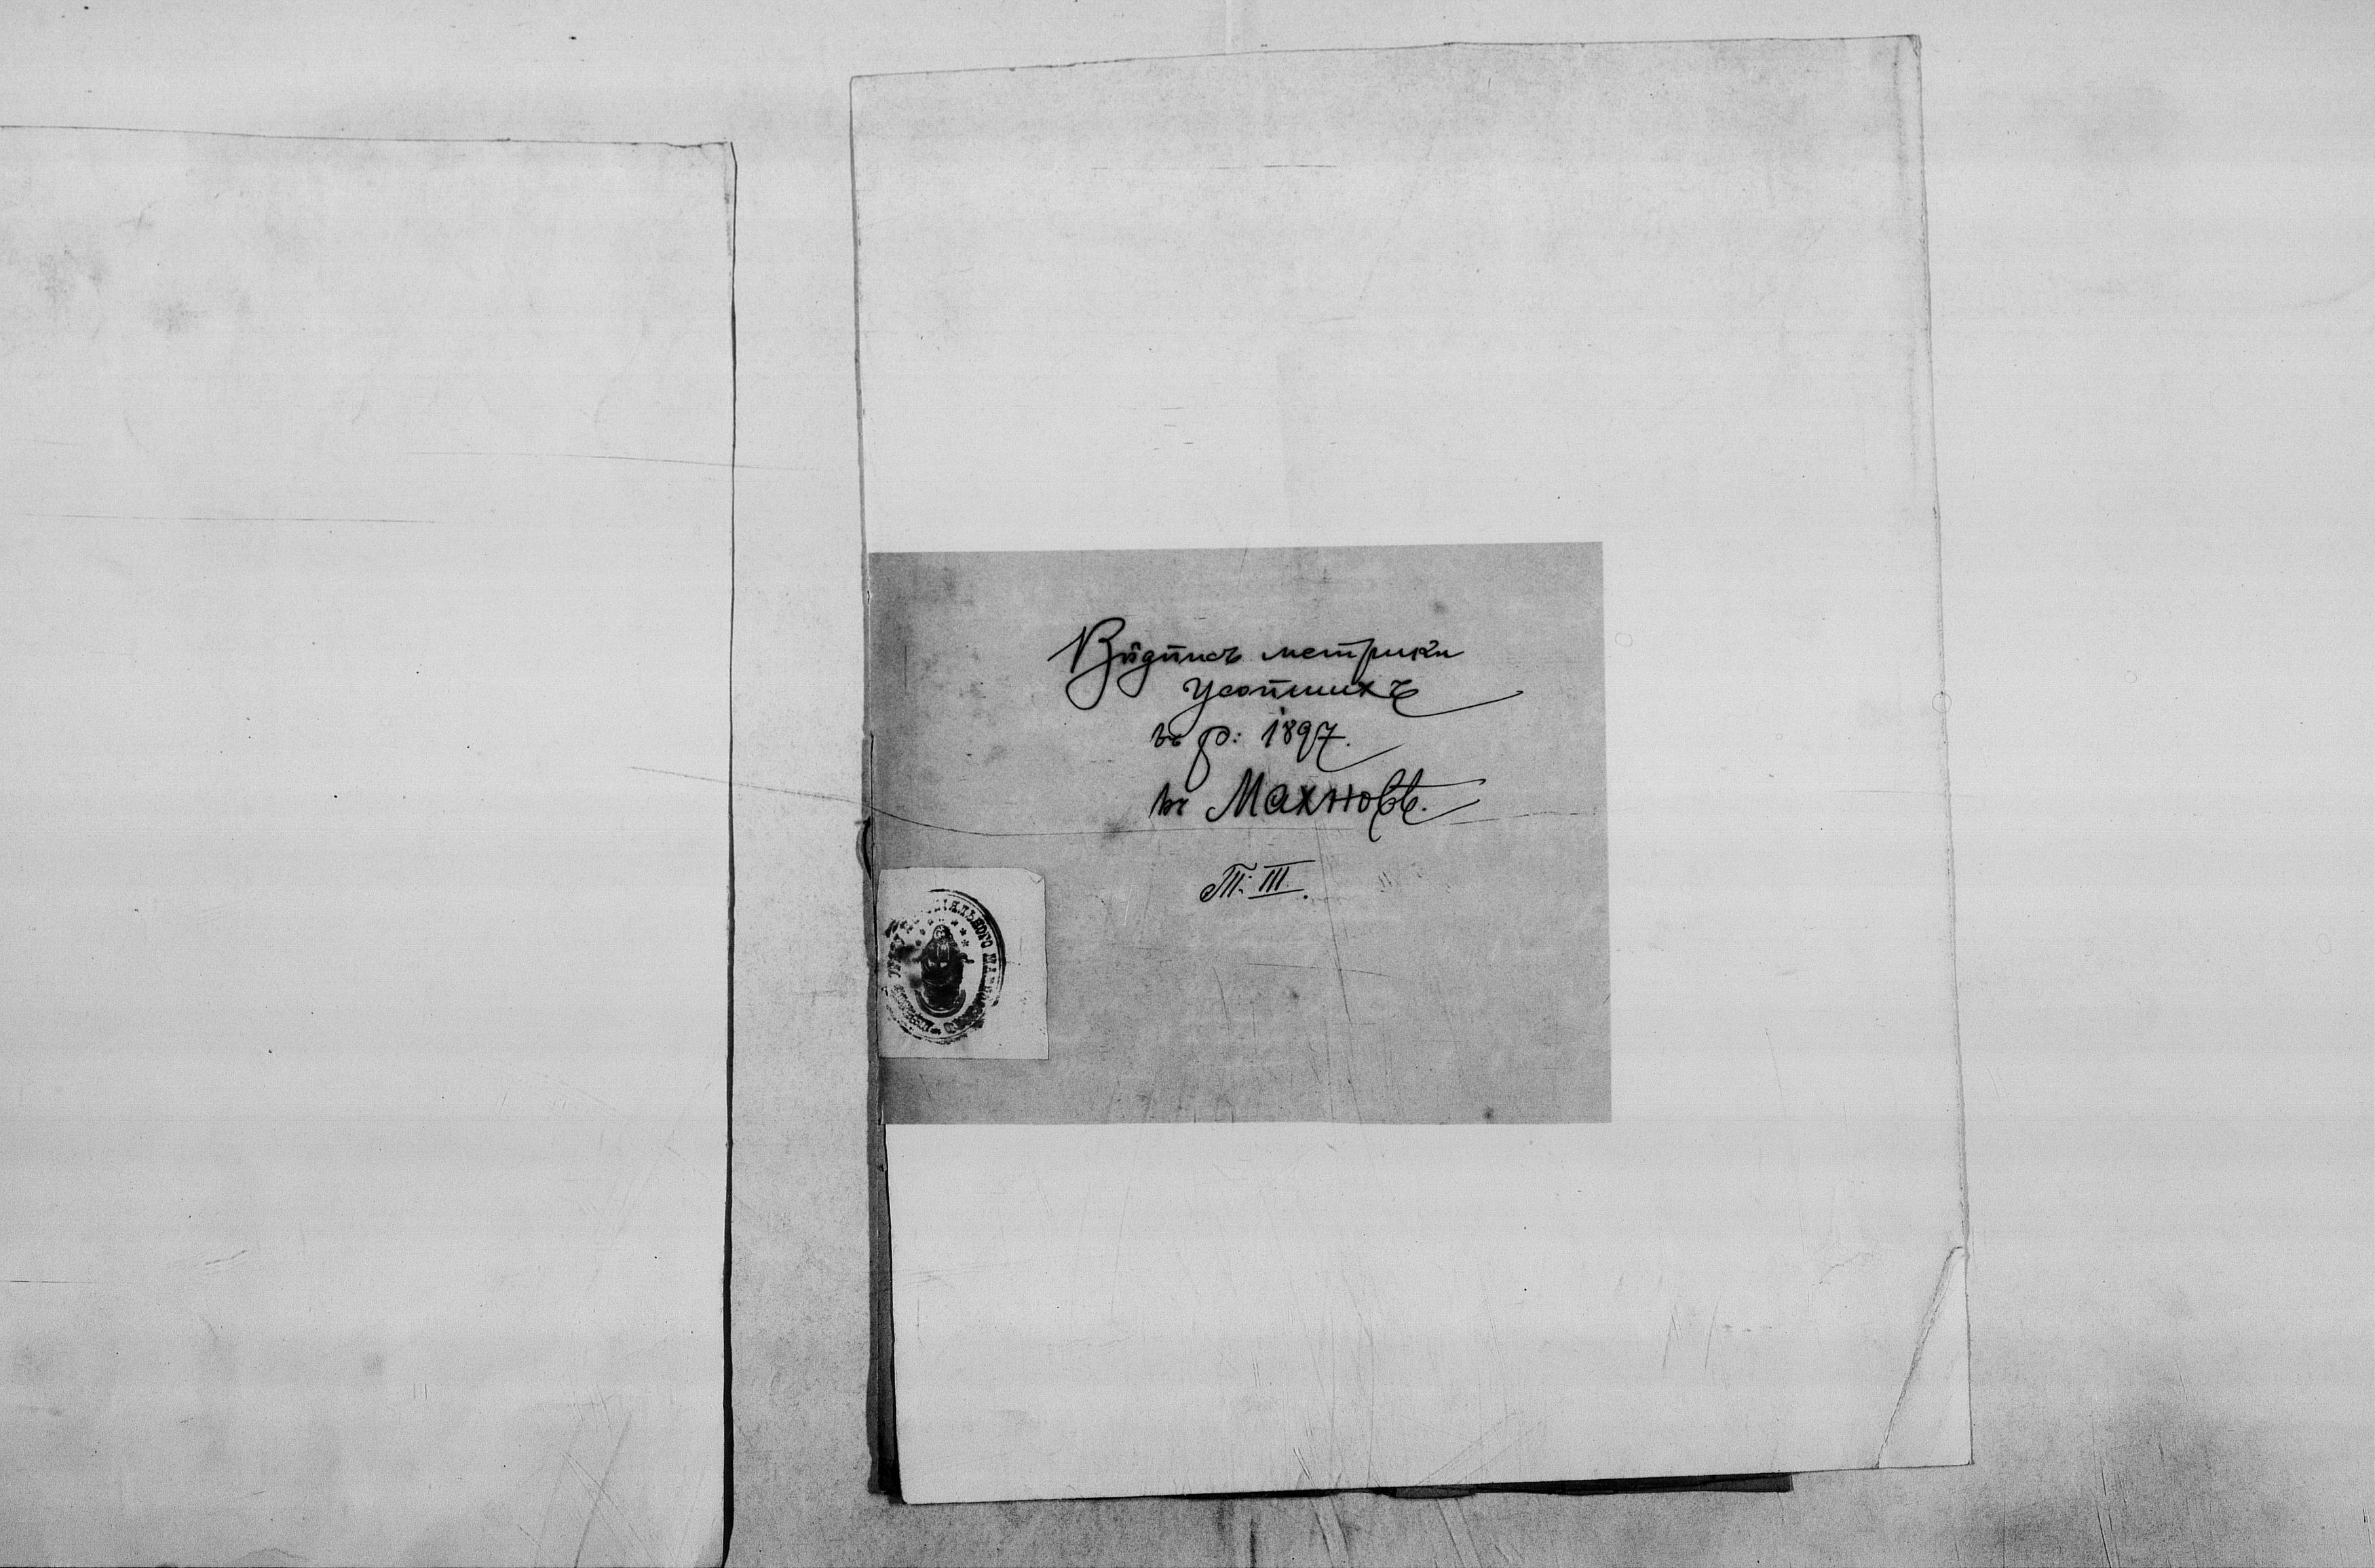 Вôдпись метрики
усопшихъ
въ р: 1897.
въ Махновѣ.
Т: III.